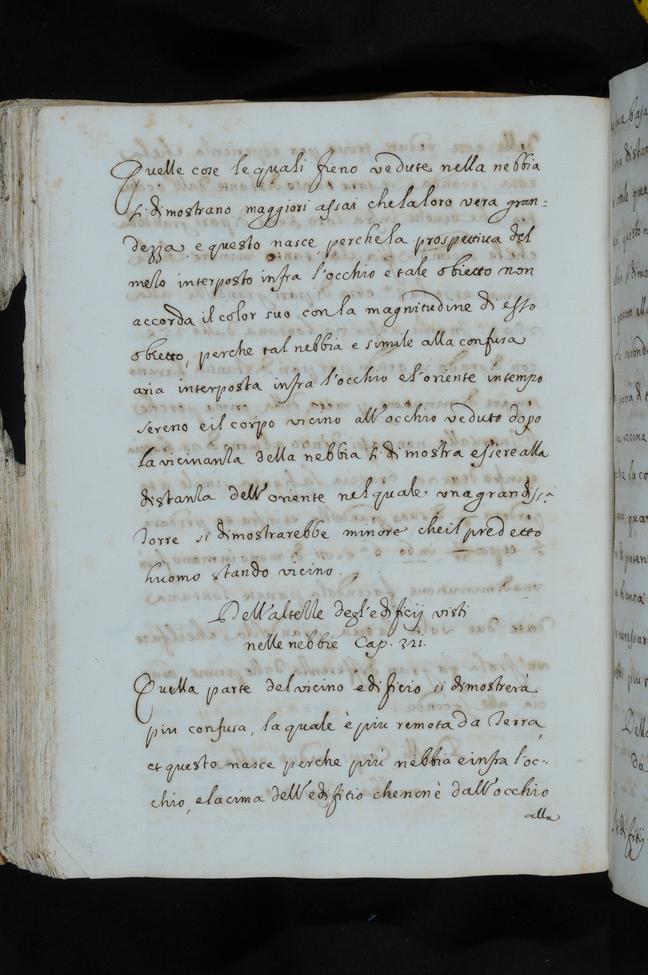 Quelle cose le quali sieno vedute nella nebbia
si dimostrano maggiori assai che la loro vera gran=
dezza, e questo nasce, perche la prospettiva del
mezo interposto infra l'occhio e tale obietto non
accorda il color suo con la magnitudine di esso
obietto, perche tal nebbia e simile alla confusa
aria interposta infra l'occhio e l'oriente in tempo
sereno e il corpo vicino all'occhio veduto dopo
la vicinanza della nebbia si dimostra essere alla
distanza dell'oriente nel quale una grandiss.a
Torre si dimostrarebbe minore che il predetto
huomo stando vicino.
Dell'altezze degl'edificij visti
nelle nebbie Cap. 321.
Quella parte del vicino edificio si dimostrerà
piu confusa, la quale è piu remota da Terra,
et questo nasce perche piu nebbia e infra l'oc-
chio, e la cima dell'edifitio che non è dall'occhio
alla